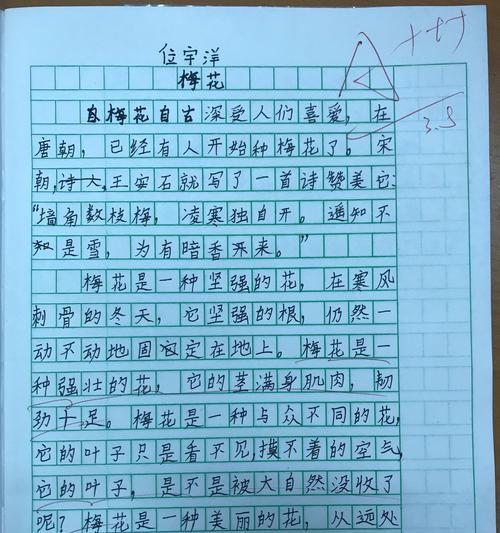 位宇洋
A+++
梅花
3.8
梅花自古深受人们喜爱，在
唐朝，已经有人开始种梅花了。宋
朝，诗人王安石就写了一首诗赞美它：
“墙角数枝梅，凌寒独自开。遥知不
是雪，为有暗香来。”
梅花是一种坚强的花，在寒风
刺骨的冬天，它坚强的根，仍然一
动不动地固定在地上。梅花是一
种强壮的花，它的茎满身肌肉，韧
劲十足。梅花是一种与众不同的花，
它的叶子只是看不见，摸不着的空气，
它的叶子，是不是被大自然没收了
呢？梅花是一种美丽的花，从远处